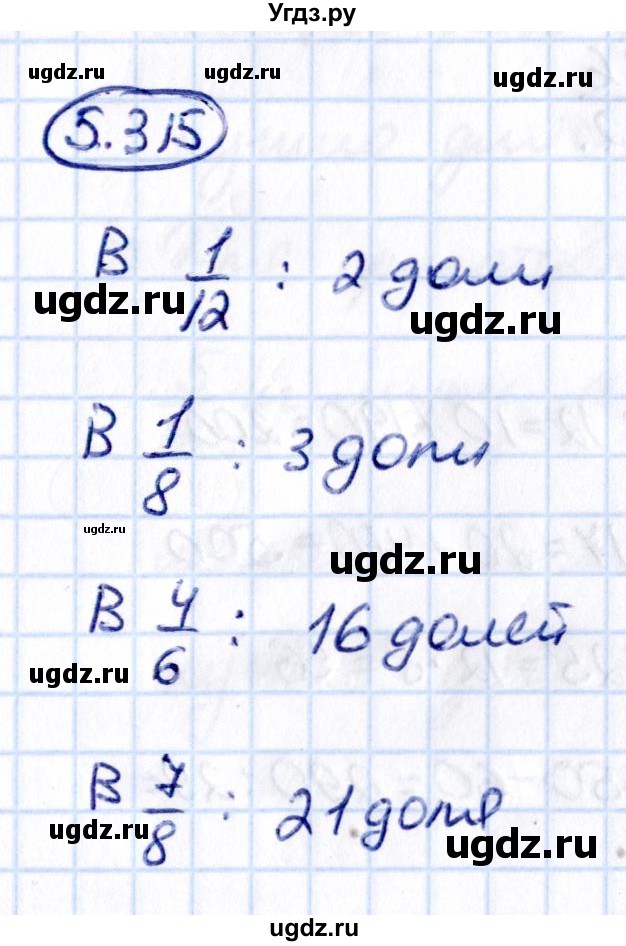 Угдз.ру
ugdz.ru ugdz.ru ugdz.ru
5.315
В 1/12 : 2 доли
ugdz.ru ugdz.ru
В 1/8 : 3 доли
ugdz.ru
ugdz.ru
В 4/6 : 16 долей
ugdz.ru ugdz.ru
В 7/8 : 21 доля
ugdz.ru ugdz.ru
ugdz.ru